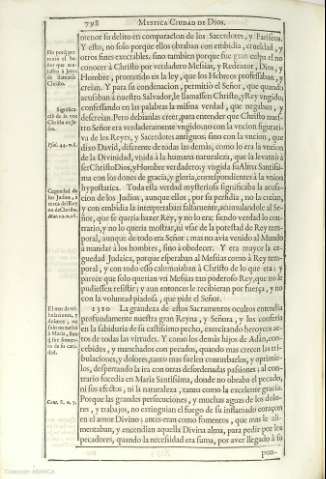 798 MYSTICA CIUDAD DE DIOS.
menor su delito en comparacion de los Sacerdotes, y Pariseos.
Y esto, no solo porque ellos obraban con embidia, crueldad, y
otros fines execrables, sino tambien porque fue gran culpa el no
conocer à Christo por verdadero Messias, y Redentor, Dios, y
Hombre, prometido en la ley, que los Hebreos professaban, y
creian. Y para su condenacion, permitió el Señor, que quando
acusaban à nuestro Salvador, le llamassen Christo, y Rey vngido,
confessando en las palabras la misma verdad, que negaban, y
descreian. Pero debianlas creer, para entender, que Christo nuestro
Señor era verdaderamente vngido, no con la vncion figurativa
de los Reyes, y Sacerdotes antiguos, sino con la vncion, que
dixo David, diferente de todas las demás, como lo era la vncion
de la Divinidad, vnida à la humana naturaleza, que la levantó à
ser Christo Dios, y Hombre verdadero; y vngida su Alma Santissima
con los dones de gracia, y gloria, correspondientes à la vnion
hypostatica. Toda esta verdad mysteriosa significaba la acusacion
de los Judios, aunque ellos, por su perfidia, no la creian,
y con embidia la interpretaban falsamente, acumulandole al Señor,
que se queria hazer Rey, y no lo era; siendo verdad lo contrario,
y no lo queria mostrar, ni vsar de la potestad de Rey temporal,
aunque de todo era Señor; mas no avia venido al Mundo
à mandar à los hombres, sino à obedecer. Y era mayor la ceguedad
Judaica, porque esperaban al Messias como à Rey temporal,
y con todo esso calumniaban à Christo de lo que era; y
parece que solo querian vn Messias tan poderoso Rey, que no le
pudiessen resistir; y aun entonces le recibieran por fuerça, y no
con la voluntad piadosa, que pide el Señor.
1310 La grandeza de estos Sacramentos ocultos entendia
profundamente nuestra gran Reyna, y Señora, y los conferia
en la sabiduria de su castissimo pecho, exercitando heroycos actos
de todas las virtudes. Y como los demás hijos de Adan, concebidos,
y manchados con pecados, quando mas crecen las tribulaciones,
y dolores, tanto mas suelen conturbarlos, y oprimirlos,
despertando la ira con otras desordenadas passiones; al contrario
sucedia en Maria Santissima, donde no obraba el pecado,
ni sus efectos, ni la naturaleza, tanto como la excelente gracia.
Porque las grandes persecuciones, y muchas aguas de los dolores,
y trabajos, no extinguian el fuego de su inflamado coraçon
en el amor Divino; antes eran como fomentos, que mas le alimentaban,
y encendian aquella Divina alma, para pedir por los
pecadores, quando la necessidad era suma, por aver llegado à su
pun-
Psal. 44. v. 8.
Cant. 8. v. 7.